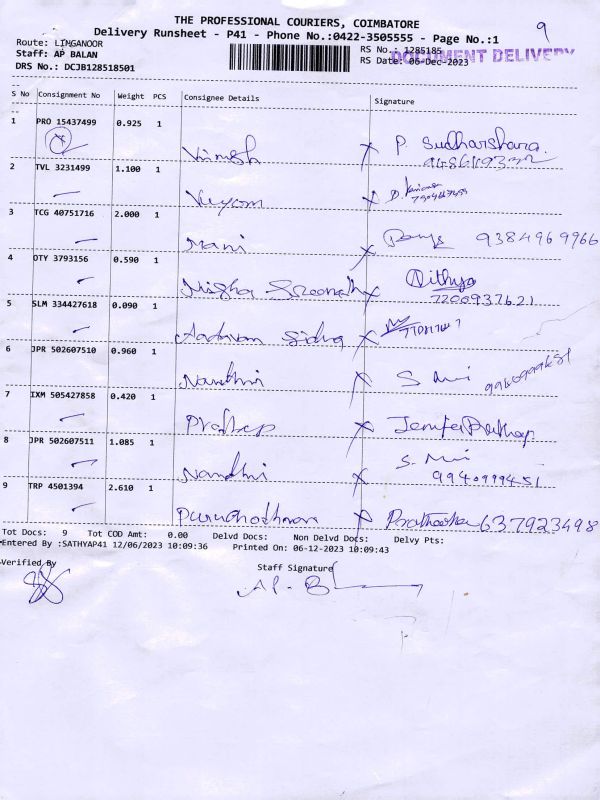 THE PROFESSIONAL COURIERS, COIMBATORE
Delivery Runsheet - P41 - Phone No.:0422-3505555 - Page No.:1
9
Route: LINGANOOR
Staff: AP BALAN
DRS No.: DCJB128518501
RS No.: 1285185
RS Date: 06-Dec-2023
DOCUMENT DELIVERY
S No Consignment No Weight PCS Consignee Details Signature
1 PRO 15437499 0.925 1 P. Sudharshara.
2 TVL 3231499 1.100 1
3 TCG 40751716 2.000 1 Mani 9384969966
4 OTY 3793156 0.590 1 Nithya
7200937621
5 SLM 334427618 0.090 1
6 JPR 502607510 0.960 1 Nandhini
7 IXM 505427858 0.420 1 Pradeep
8 JPR 502607511 1.085 1 Nandhini
9 TRP 4501394 2.610 1 637923498
Tot Docs: 9 Tot COD Amt: 0.00 Delvd Docs: Non Delvd Docs: Delvy Pts:
Entered By :SATHYAP41 12/06/2023 10:09:36 Printed On: 06-12-2023 10:09:43
Verified By
Staff Signature